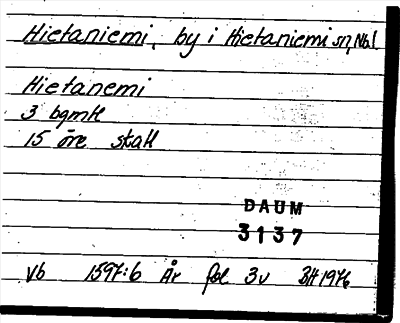 Hietaniemi, by i Hietaniemi sn, Nbl
Hietanemi
3 bgmtl
15 öre skatt
DAUM
3137
Vb 1597:6 År fol 3v BH 1976